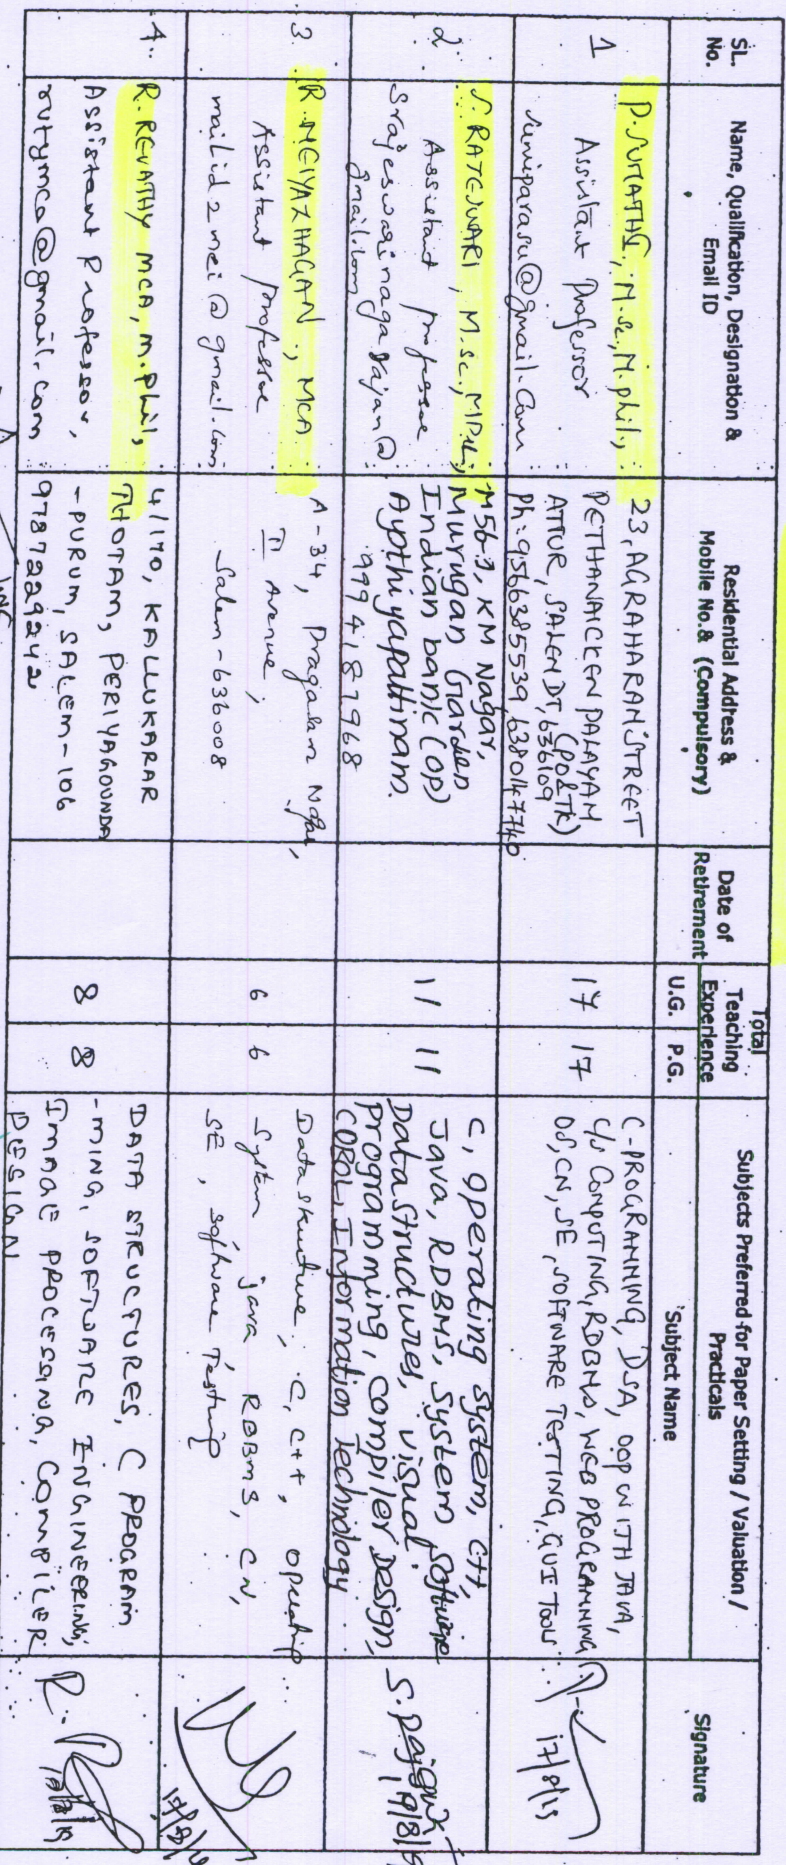 SL. No.
Name, Qualification, Designation & Email ID
Residential Address & Mobile No.& (Compulsory)
Date of Retirement
Total Teaching Experience
U.G.
P.G.
Subjects Preferred for Paper Setting / Valuation / Practicals
Subject Name
Signature
1
P. SUMATHI, M.Sc., M.phil.,
Assistant Professor
sumiparasu@gmail.com
23, AGRAHARAM STREET
PETHANAICKEN PALAYAM
(PO&TK)
ATTUR, SALEM DT, 636109
Ph: 9566385539, 6380147740
17
17
C-PROGRAMMING, DSA, OOP WITH JAVA,
C/S COMPUTING, RDBMS, WEB PROGRAMMING
OS, CN, SE, SOFTWARE TESTING, GUI TOOLS
17/8/19
2
S. RAJESWARI, M.sc., MPhil.,
Assistant professor
srajeswarinagarajan@
gmail.com
M563, KM Nagar,
Murugan Garden
Indian bank (OP)
Aypthiyapattinam.
9994187968
11
11
C, Operating System, C++,
Java, RDBMS, System Software
Data Structures, Visual
Programming, Compiler Design,
COBOL, Information technology
S. Rajeswari
17/8/19
3
R. MEIYAZHAGAN., MCA
Assistant professor
mailid2mei@gmail.com
A-34, Pragalam Nagar,
II Avenue,
Salem-636008
6
6
Data structure, C, C++, operating
System, java RDBMS, CN,
SE, software Testing
17/8/19
4.
R. REVATHY MCA, M.Phil,
Assistant Professor,
rutymca@gmail.com
4/170, KALLUKARAR
THOTAM, PERIYAGOUNDA
-PURUM, SALEM-106
9787229242
8
8
DATA STRUCTURES, C PROGRAM
-MING, SOFTWARE ENGINEERING,
IMAGE PROCESSING, COMPILER
DESIGN